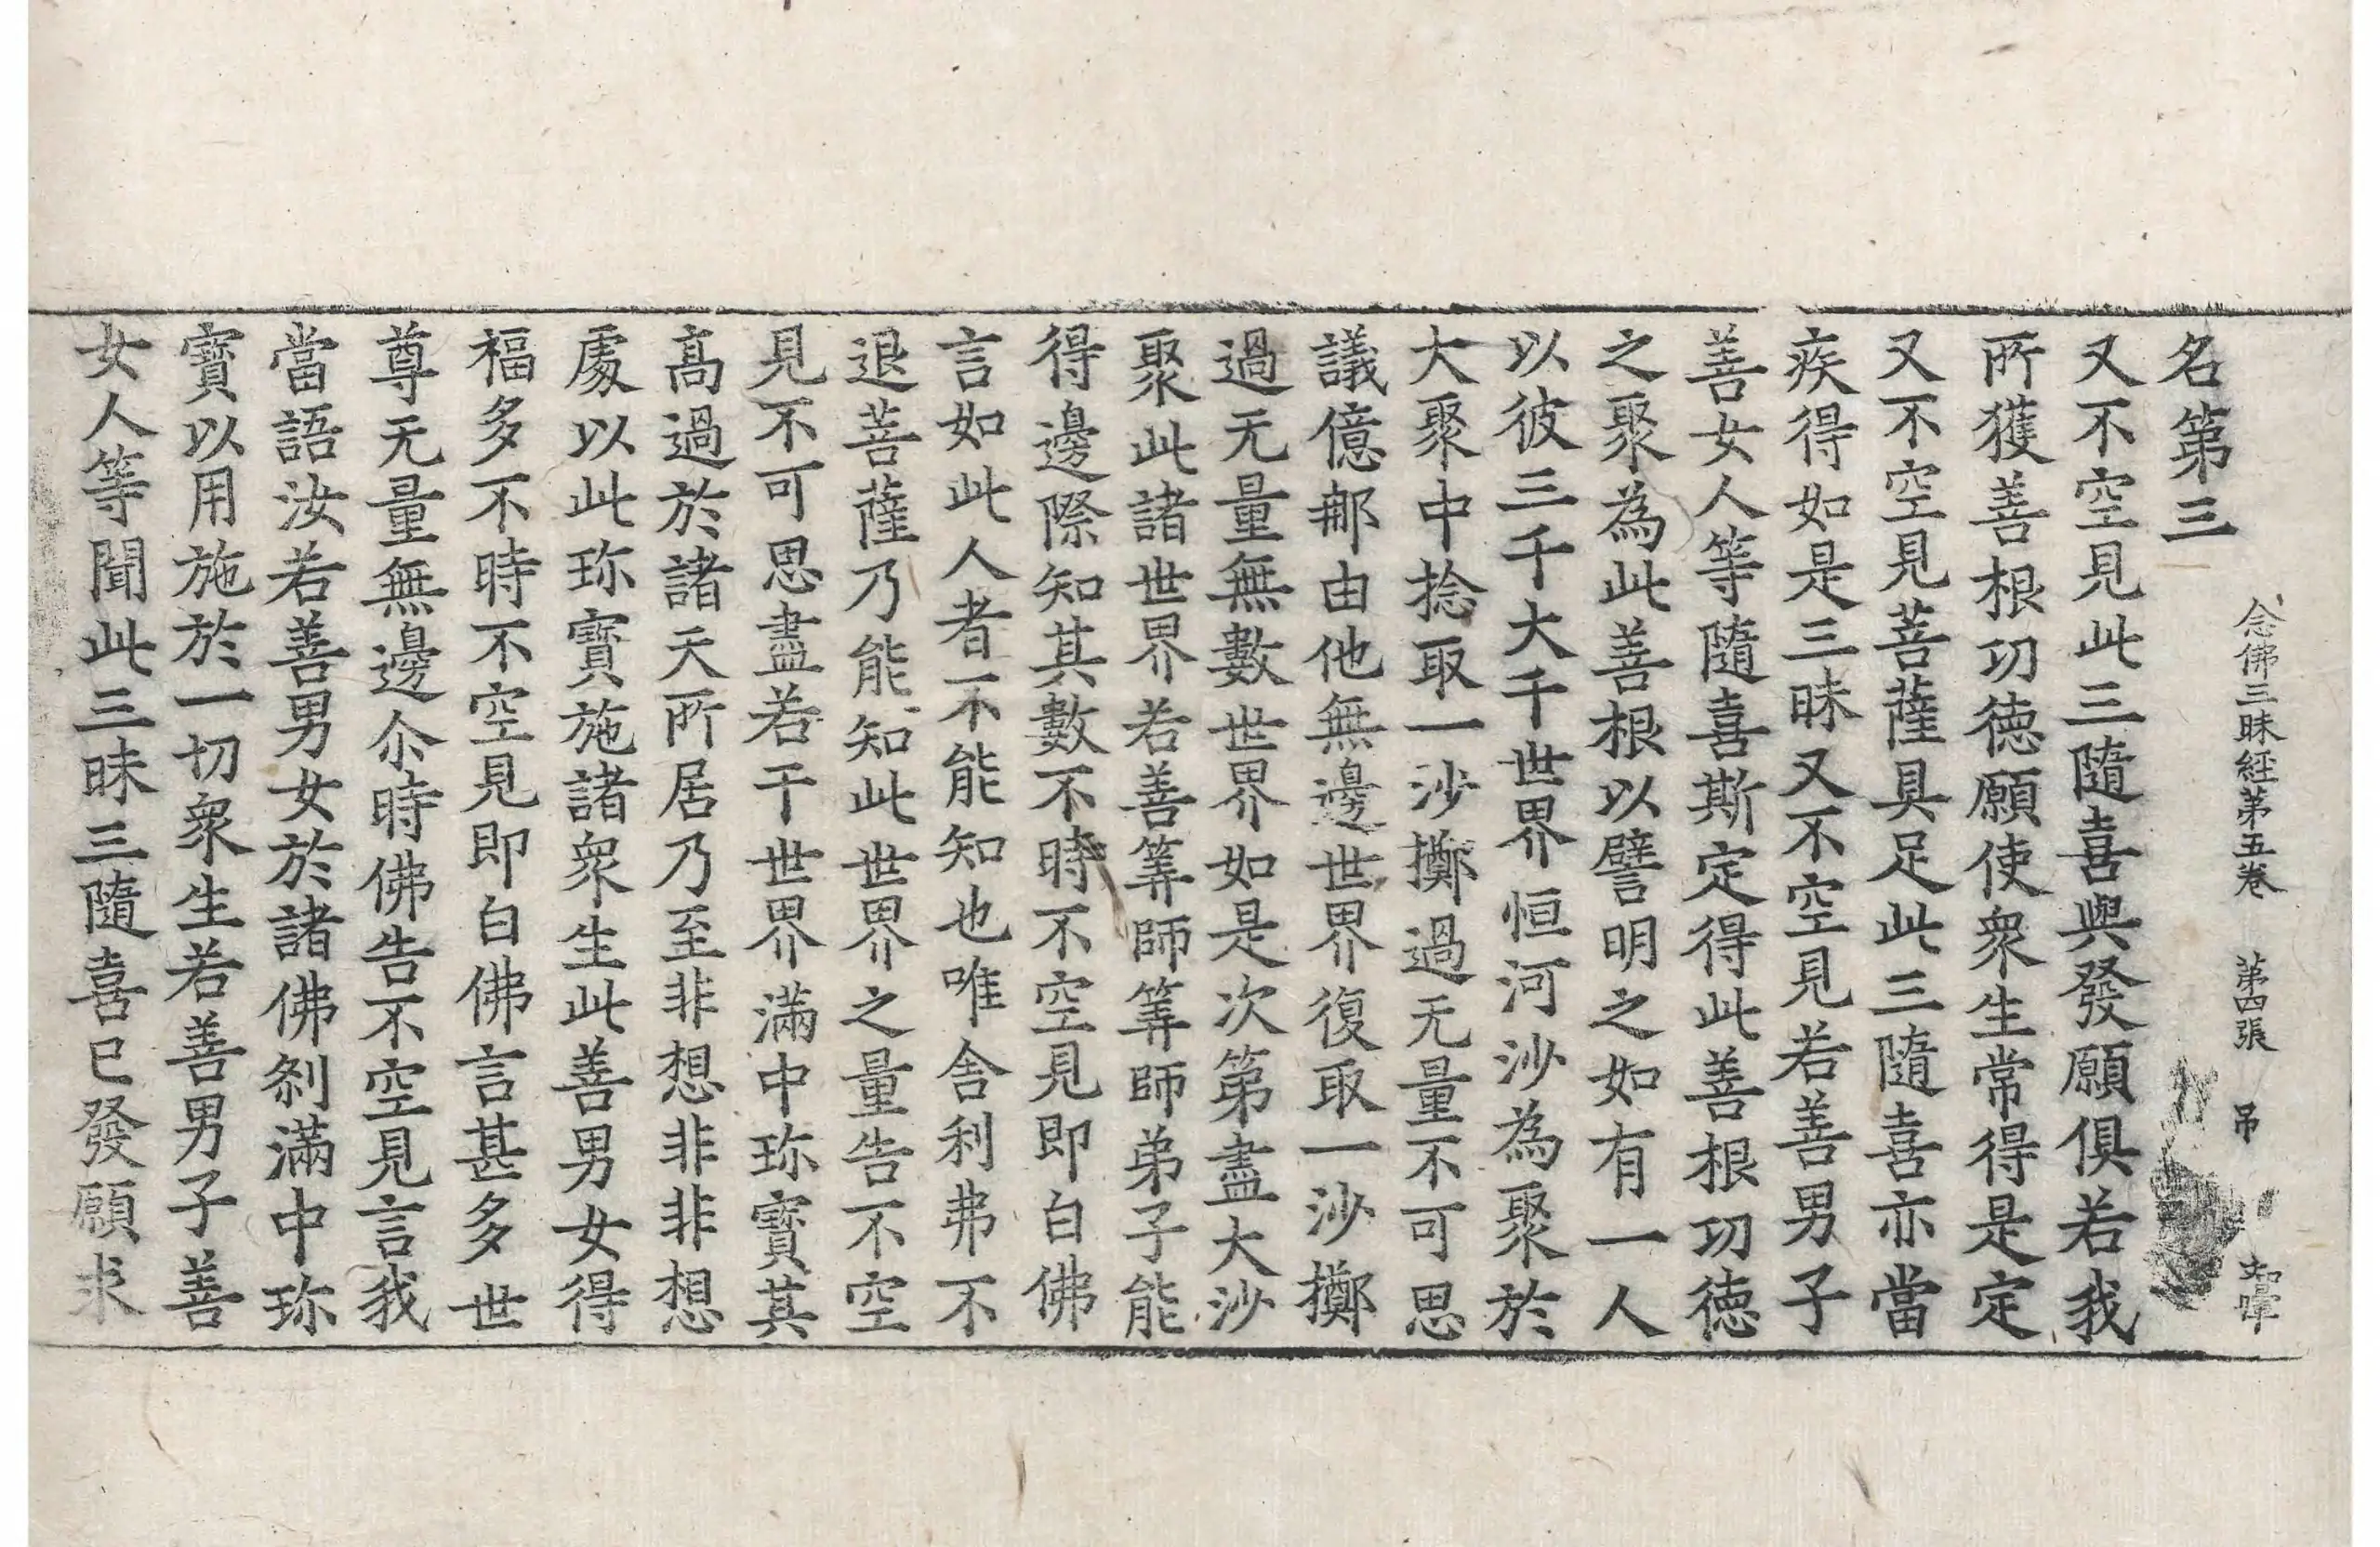 念佛三昧經第五卷 第四張 吊
名第三
又不空見此三隨喜與發願俱若我
所獲善根功德願使衆生常得是定
又不空見菩薩具足此三隨喜亦當
疾得如是三昧又不空見若善男子
善女人等隨喜斯定得此善根功德
之聚為此善根以譬明之如有一人
以彼三千大千世界恒河沙為聚於
大聚中捻取一沙擲過无量不可思
議億那由他無邊世界復取一沙擲
過无量無數世界如是次第盡大沙
聚此諸世界若善筭師筭師弟子能
得邊際知其數不時不空見即白佛
言如此人者不能知也唯舍利弗不
退菩薩乃能知此世界之量告不空
見不可思盡若干世界滿中珎寶其
高過於諸天所居乃至非想非非想
處以此珎寶施諸衆生此善男女得
福多不時不空見即白佛言甚多世
尊无量無邊尒時佛告不空見言我
當語汝若善男女於諸佛刹滿中珎
寶以用施於一切衆生若善男子善
女人等聞此三昧三隨喜已發願求